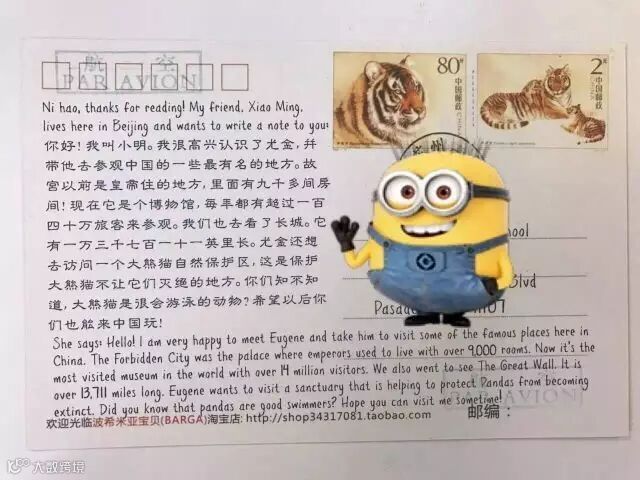 航 空
PAR AVION
80分
中国邮政
CHINA
2元
中国邮政
CHINA
Ni hao, thanks for reading! My friend, Xiao Ming,
lives here in Beijing and wants to write a note to you:
你好！我叫小明。我很高兴认识了尤金，并
带他去参观中国的一些最有名的地方。故
宫以前是皇帝住的地方，里面有九千多间房
间！现在它是个博物馆，每年都有超过一百
四十万旅客来参观。我们也去看了长城。它
有一万三千七百一十一英里长。尤金还想
去访问一个大熊猫自然保护区，这是保护
大熊猫不让它们灭绝的地方。你们知不知
道，大熊猫是很会游泳的动物？希望以后你
们也能来中国玩！
州
ool
Blvd
Pasade
107
She says: Hello! I am very happy to meet Eugene and take him to visit some of the famous places here in
China. The Forbidden City was the palace where emperors used to live with over 9,000 rooms. Now it's the
most visited museum in the world with over 14 million visitors. We also went to see The Great Wall. It is
over 13,711 miles long. Eugene wants to visit a sanctuary that is helping to protect Pandas from becoming
extinct. Did you know that pandas are good swimmers? Hope you can visit me sometime!
PAR AVION
欢迎光临波希米亚宝贝(BARGA)淘宝店: http://shop34317081.taobao.com
邮编：
大数跨境